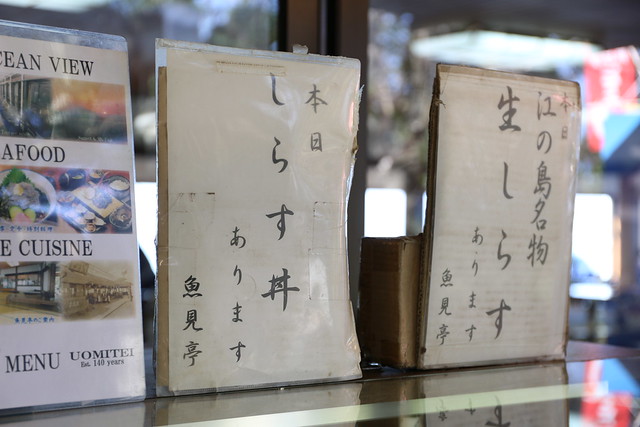 CEAN VIEW
AFOOD
E CUISINE
MENU UOMITEI
Est. 140 years
本日
しらす丼
あります
魚見亭
本日
江の島名物
生しらす
あります
魚見亭